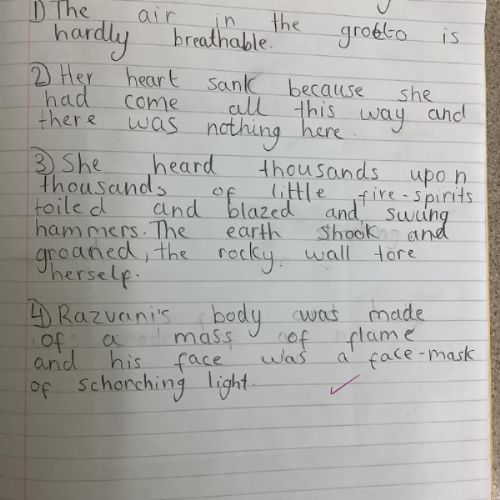 1) The air in the grotto is
hardly breathable.
2) Her heart sank because she
had come all this way and
there was nothing here.
3) She heard thousands upon
thousands of little fire-spirits
toiled and blazed and swung
hammers. The earth shook and
groaned, the rocky wall tore
herself.
4) Razvani's body was made
of a mass of flame
and his face was a face-mask
of schorching light.